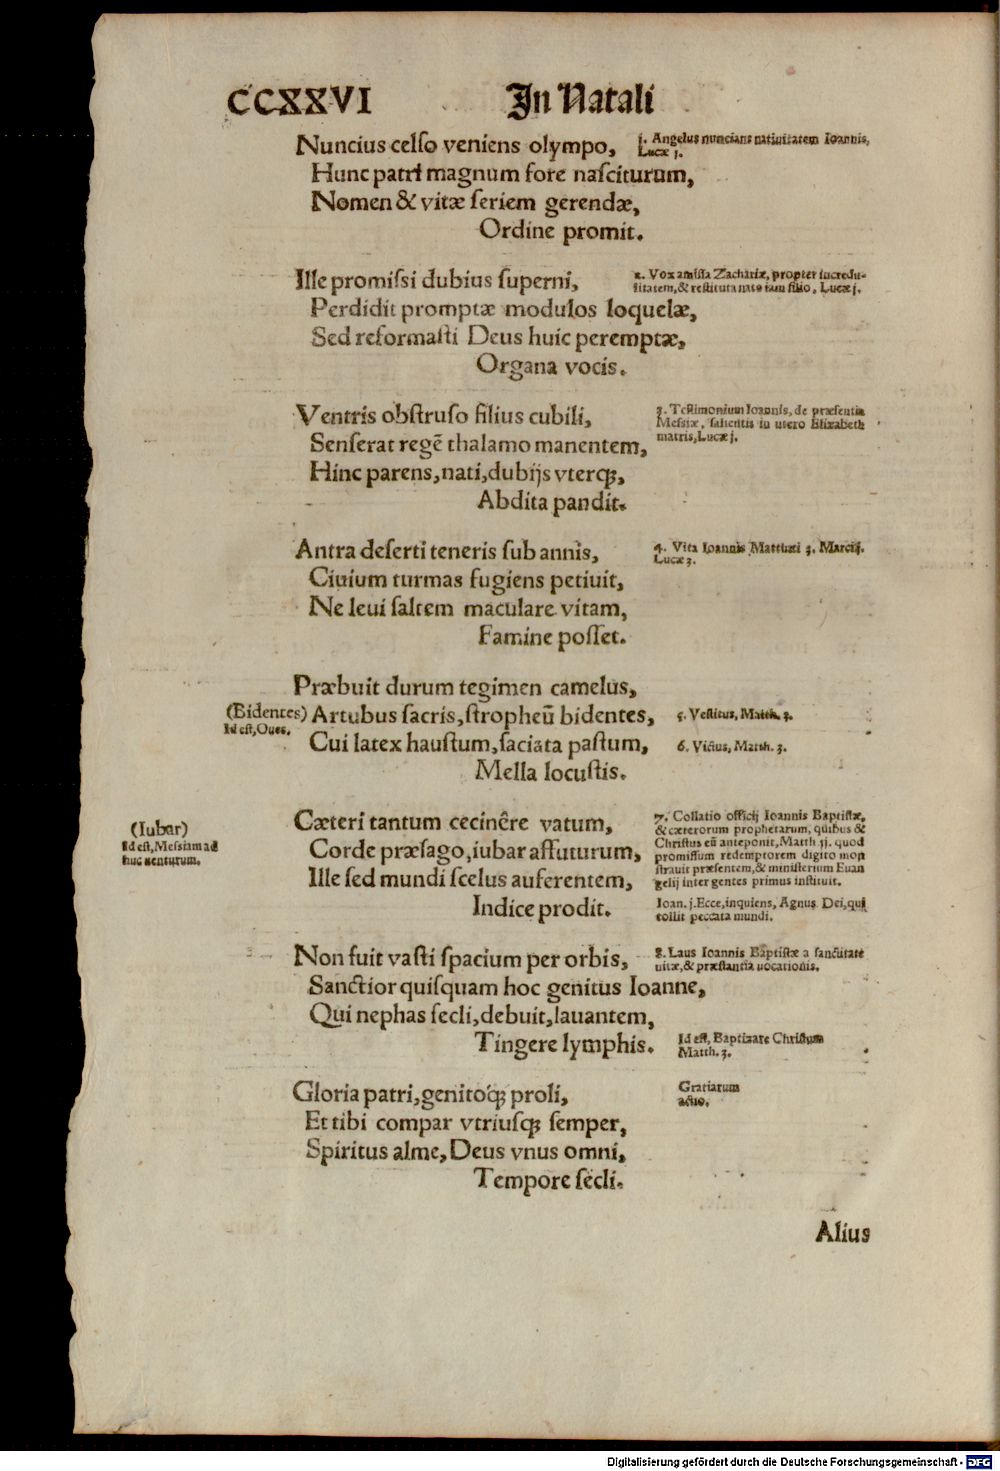 CCXXVI In Natali
Nuncius celſo veniens olympo,
j. Angelus nuncians natiuitatem Ioannis,
Lucæ j.
Hunc patri magnum fore naſciturum,
Nomen & vitæ ſeriem gerendæ,
Ordine promit.
Ille promiſsi dubius ſuperni,
2. Vox amiſſa Zachariæ, propter incredu-
litatem, & reſtituta nato iam filio, Lucæ j.
Perdidit promptæ modulos loquelæ,
Sed reformaſti Deus huic peremptæ,
Organa vocis.
Ventris obſtruſo filius cubili,
3. Teſtimonium Ioannis, de præſentia
Meſsiæ, ſalientis in utero Elizabeth
matris, Lucæ j.
Senſerat regē thalamo manentem,
Hinc parens, nati, dubijs vterq;,
Abdita pandit.
Antra deſerti teneris ſub annis,
4. Vita Ioannis Matthæi 3. Marci j.
Lucæ 3.
Ciuium turmas fugiens petiuit,
Ne leui ſaltem maculare vitam,
Famine poſſet.
Præbuit durum tegimen camelus,
(Bidentes)
Id eſt, Oues.
Artubus ſacris, ſtropheū bidentes,
5. Veſtitus, Matth. 3.
Cui latex hauſtum, ſaciata paſtum,
6. Victus, Matth. 3.
Mella locuſtis.
Cæteri tantum cecinêre vatum,
(Iubar)
Id eſt, Meſsiam ad
huc uenturum.
7. Collatio officij Ioannis Baptiſtæ,
& cæterorum prophetarum, quibus &
Chriſtus eū anteponit, Matth jj. quod
promiſſum redemptorem digito mon
ſtrauit præſentem, & miniſterium Euan
gelij inter gentes primus inſtituit.
Ioan. j. Ecce, inquiens, Agnus Dei, qui
tollit peccata mundi.
Corde præſago, iubar affuturum,
Ille ſed mundi ſcelus auferentem,
Indice prodit.
Non fuit vaſti ſpacium per orbis,
8. Laus Ioannis Baptiſtæ a ſanctitate
uitæ, & præſtantia uocationis.
Sanctior quiſquam hoc genitus Ioanne,
Qui nephas ſecli, debuit, lauantem,
Tingere lymphis.
Id eſt, Baptizare Chriſtum
Matth. 3.
Gloria patri, genitoq́; proli,
Gratiarum
actio.
Et tibi compar vtriuſq; ſemper,
Spiritus alme, Deus vnus omni,
Tempore ſecli.
Alius
Digitalisierung gefördert durch die Deutsche Forschungsgemeinschaft - DFG